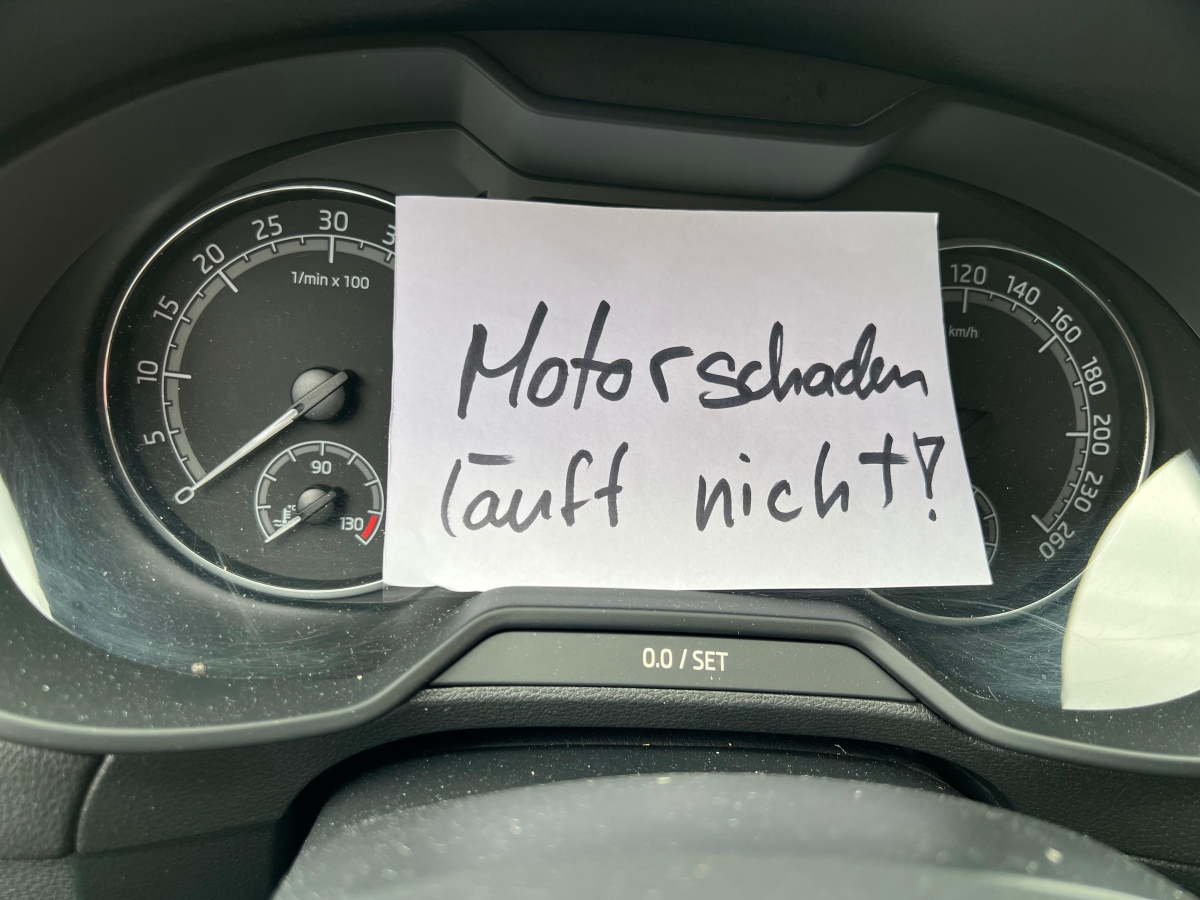 5
10
15
20
25
30
1/min x 100
90
130
Motorschaden
läuft nicht!
120
140
160
180
200
230
260
km/h
0.0 / SET